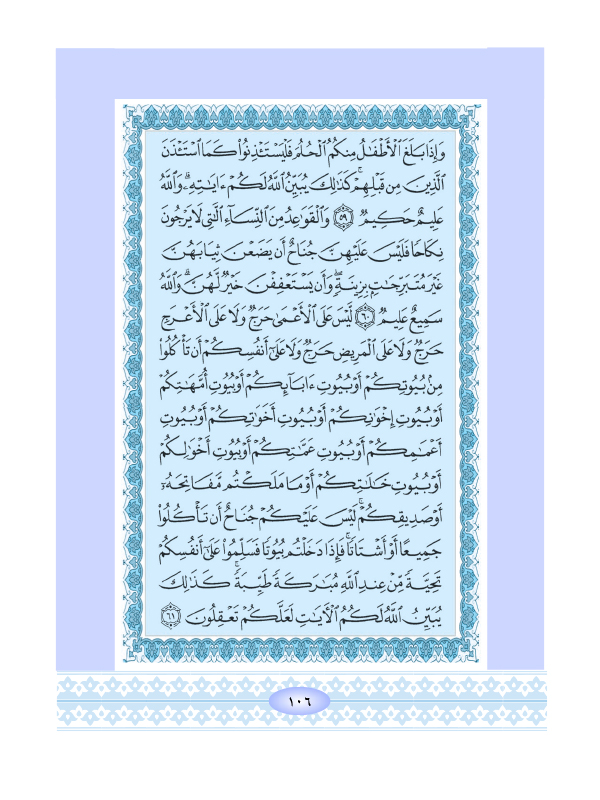 وَإِذَا بَلَغَ ٱلْأَطْفَٰلُ مِنكُمُ ٱلْحُلُمَ فَلْيَسْتَـْٔذِنُوا۟ كَمَا ٱسْتَـْٔذَنَ
ٱلَّذِينَ مِن قَبْلِهِمْ ۚ كَذَٰلِكَ يُبَيِّنُ ٱللَّهُ لَكُمْ ءَايَٰتِهِۦ ۗ وَٱللَّهُ
عَلِيمٌ حَكِيمٌ ﴿٥٩﴾ وَٱلْقَوَٰعِدُ مِنَ ٱلنِّسَآءِ ٱلَّٰتِى لَا يَرْجُونَ
نِكَاحًا فَلَيْسَ عَلَيْهِنَّ جُنَاحٌ أَن يَضَعْنَ ثِيَابَهُنَّ
غَيْرَ مُتَبَرِّجَٰتٍۭ بِزِينَةٍ ۖ وَأَن يَسْتَعْفِفْنَ خَيْرٌ لَّهُنَّ ۗ وَٱللَّهُ
سَمِيعٌ عَلِيمٌ ﴿٦٠﴾ لَّيْسَ عَلَى ٱلْأَعْمَىٰ حَرَجٌ وَلَا عَلَى ٱلْأَعْرَجِ
حَرَجٌ وَلَا عَلَى ٱلْمَرِيضِ حَرَجٌ وَلَا عَلَىٰٓ أَنفُسِكُمْ أَن تَأْكُلُوا۟
مِنۢ بُيُوتِكُمْ أَوْ بُيُوتِ ءَابَآئِكُمْ أَوْ بُيُوتِ أُمَّهَٰتِكُمْ
أَوْ بُيُوتِ إِخْوَٰنِكُمْ أَوْ بُيُوتِ أَخَوَٰتِكُمْ أَوْ بُيُوتِ
أَعْمَٰمِكُمْ أَوْ بُيُوتِ عَمَّٰتِكُمْ أَوْ بُيُوتِ أَخْوَٰلِكُمْ
أَوْ بُيُوتِ خَٰلَٰتِكُمْ أَوْ مَا مَلَكْتُم مَّفَاتِحَهُۥٓ
أَوْ صَدِيقِكُمْ ۚ لَيْسَ عَلَيْكُمْ جُنَاحٌ أَن تَأْكُلُوا۟
جَمِيعًا أَوْ أَشْتَاتًا ۚ فَإِذَا دَخَلْتُم بُيُوتًا فَسَلِّمُوا۟ عَلَىٰٓ أَنفُسِكُمْ
تَحِيَّةً مِّنْ عِندِ ٱللَّهِ مُبَٰرَكَةً طَيِّبَةً ۚ كَذَٰلِكَ
يُبَيِّنُ ٱللَّهُ لَكُمُ ٱلْـَٔايَٰتِ لَعَلَّكُمْ تَعْقِلُونَ ﴿٦١﴾
١٠٦